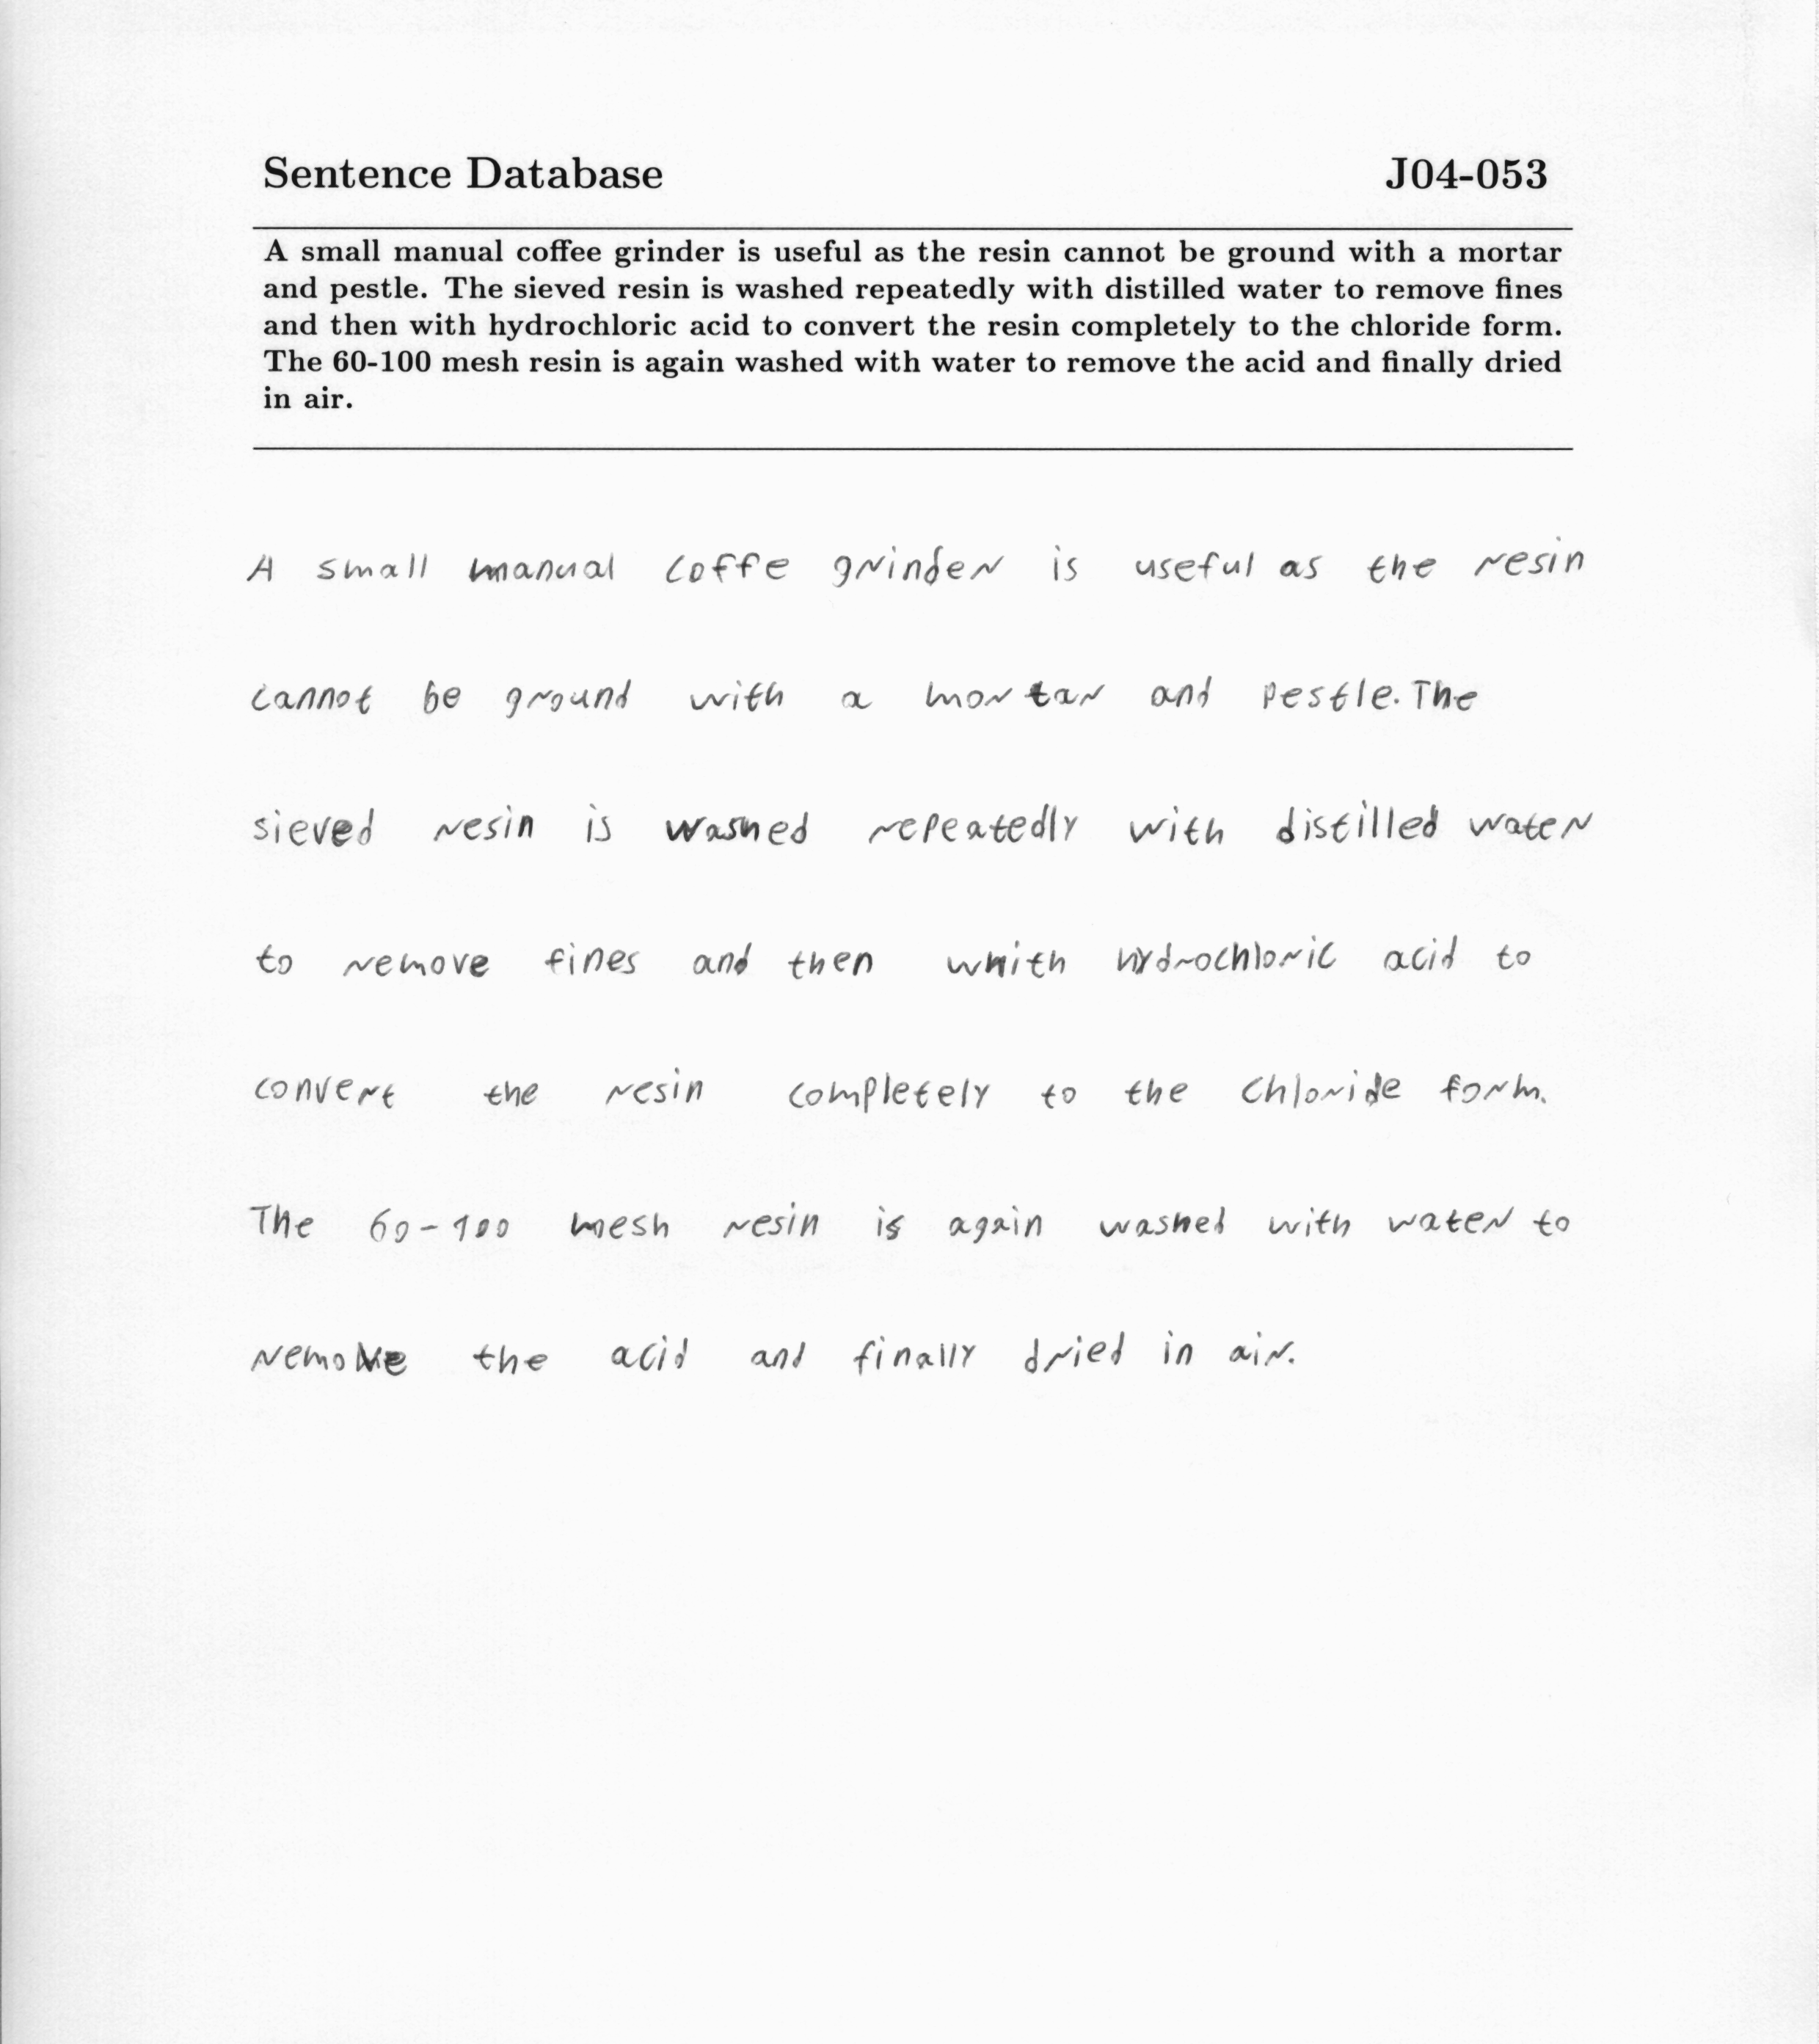 Sentence Database J04-053
A small manual coffee grinder is useful as the resin cannot be ground with a mortar
and pestle. The sieved resin is washed repeatedly with distilled water to remove fines
and then with hydrochloric acid to convert the resin completely to the chloride form.
The 60-100 mesh resin is again washed with water to remove the acid and finally dried
in air.
A small manual coffe grinder is useful as the resin
cannot be ground with a mortar and pestle. The
sieved resin is washed repeatedly with distilled water
to remove fines and then whith hydrochloric acid to
convert the resin completely to the chloride form.
The 60-100 mesh resin is again washed with water to
remove the acid and finally dried in air.